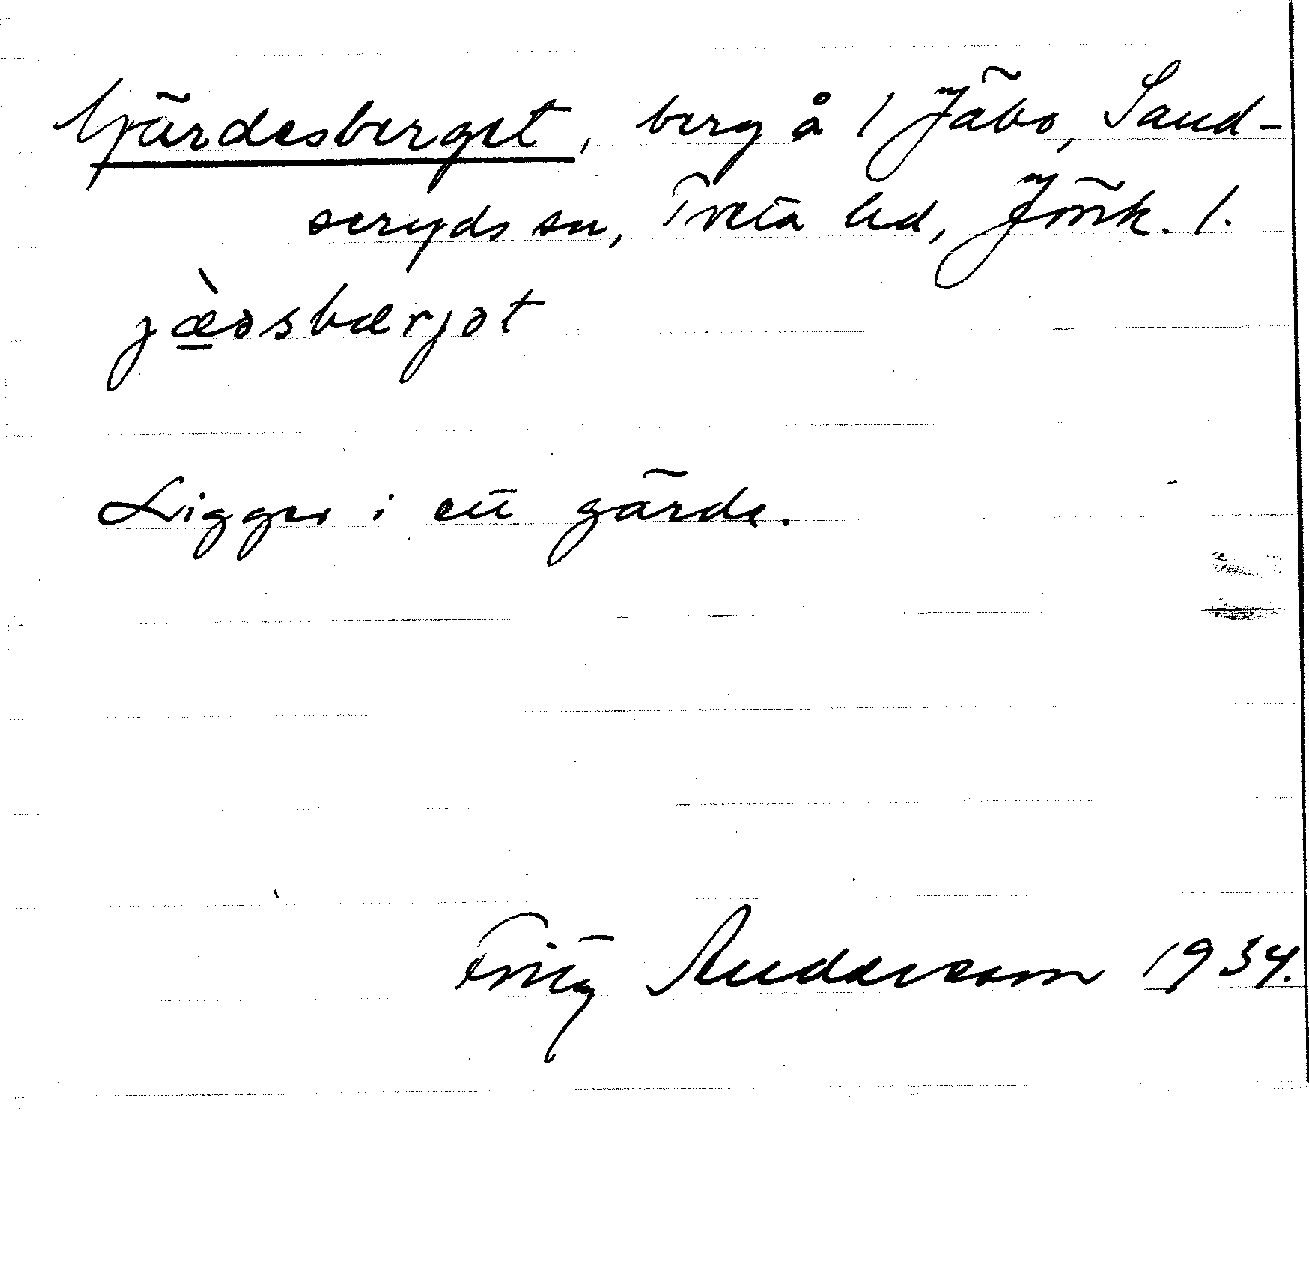 Gärdesberget, berg å 1 Jäbo, Sand-
seryds sn, Tveta hd, Jönk. l.
jæ̀əsbærjət
Ligger i ett gärde.
Fritz Andersson 1934.